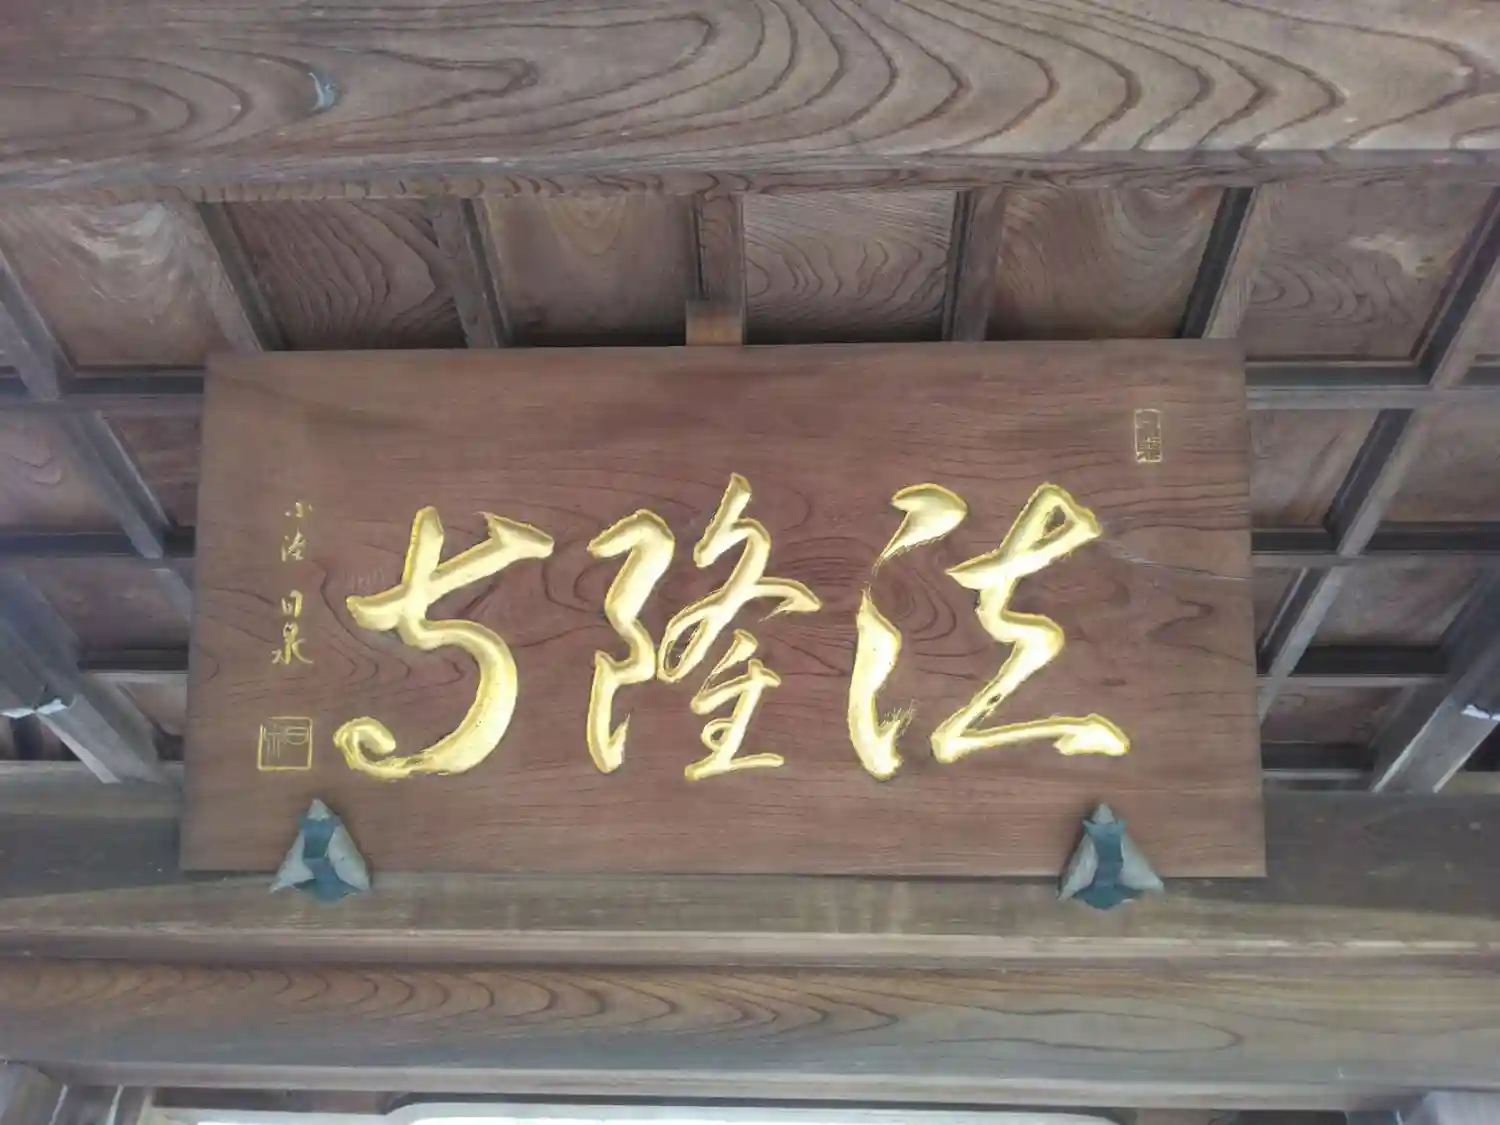 法隆寺
小法 日泉